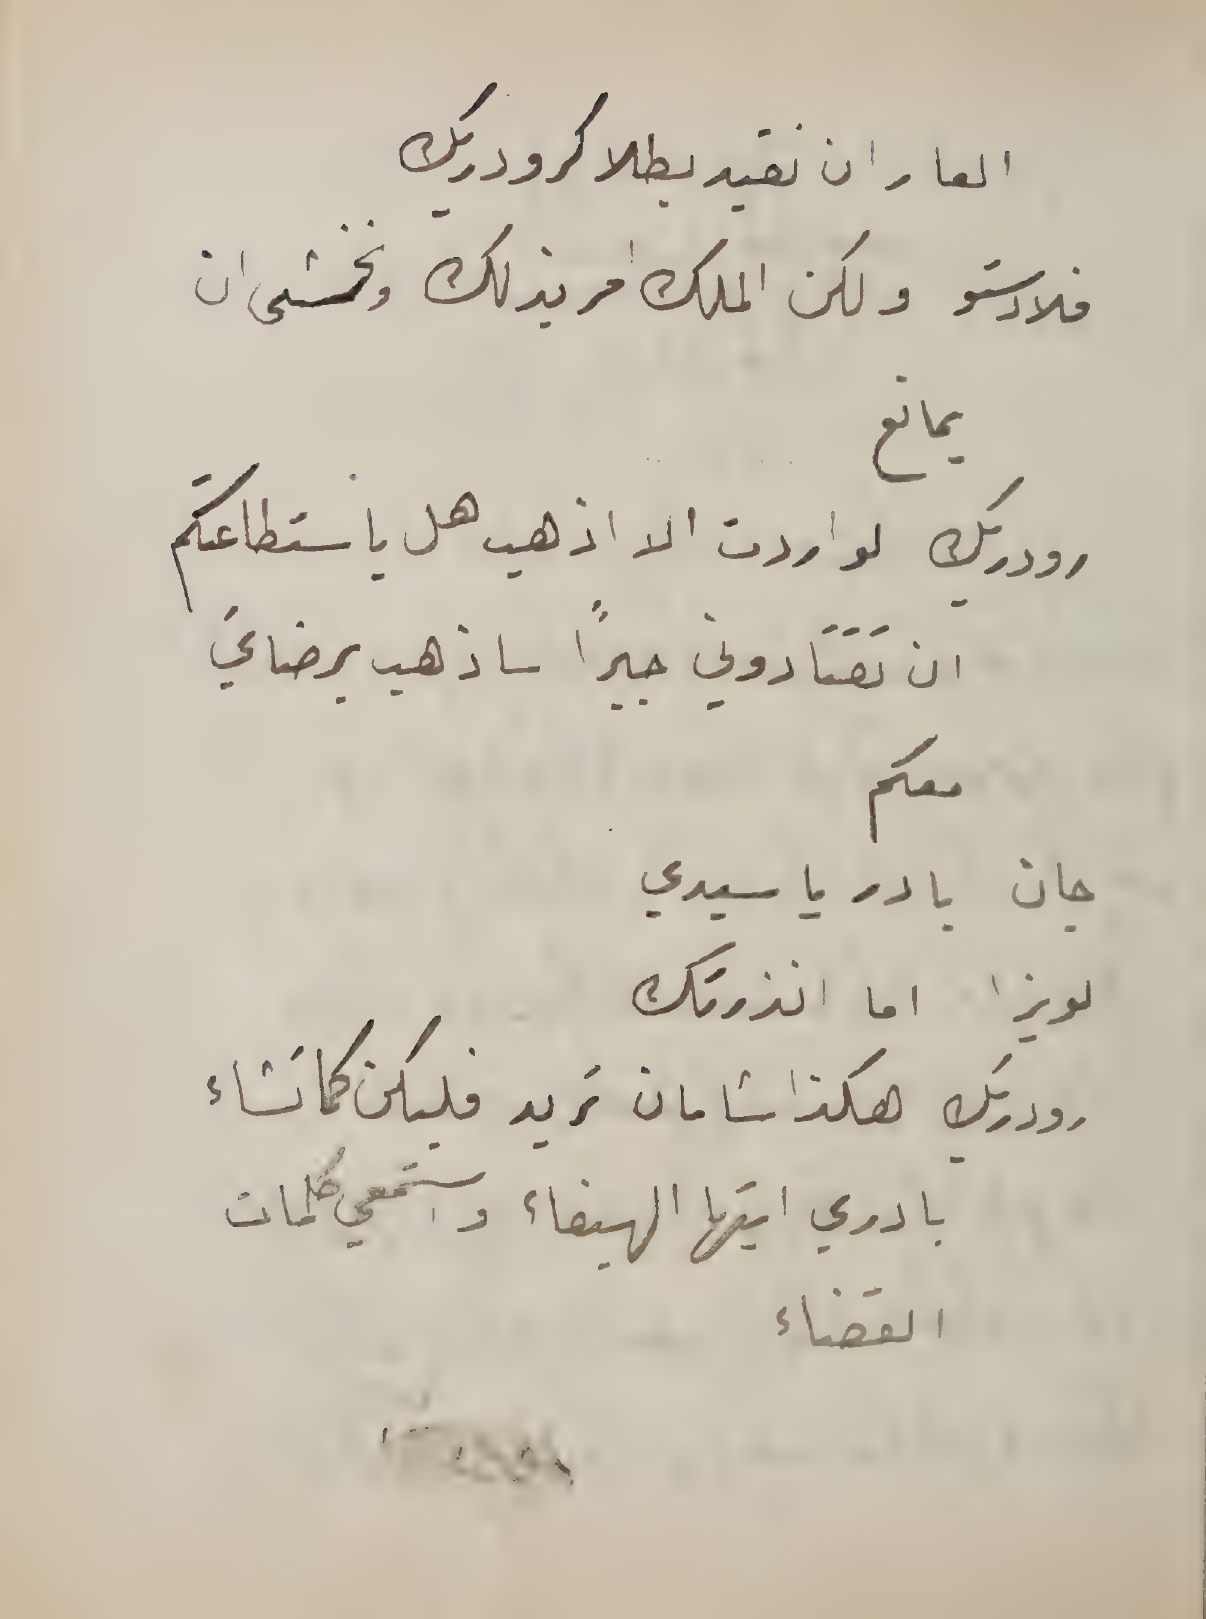 العار ان نقيد بطلا كرودريك
فلادستو ولكن الملك امر بذلك ونخشى ان
يمانع
رودريك لو اردت الا اذهب هل باستطاعتكم
ان تَقتَادوني جبرًا ساذهب برضائي
معكم
جان بادر يا سيدي
لويزا اما انذرتك
رودريك هكذا شا مان تريد فليكن كما تشاء
بادري ايتها الهيفاء واستمعي كلمات
القضاء